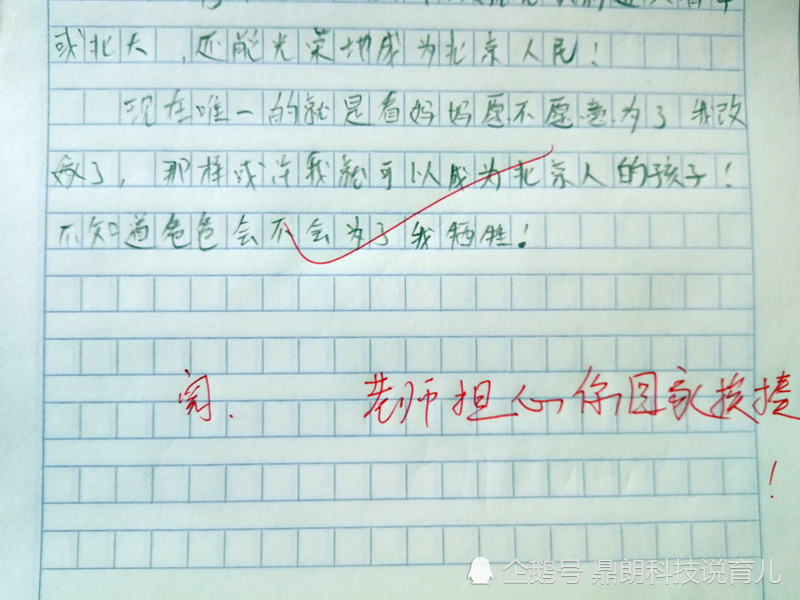 或北大,还能光荣地成为北京人民!
现在唯一的就是看妈妈愿不愿意为了我改
嫁了,那样或许我就可以成为北京人的孩子!
不知道爸爸会不会为了我牺牲!
阅. 老师担心你回家挨揍
!
企鹅号 鼎朗科技说育儿